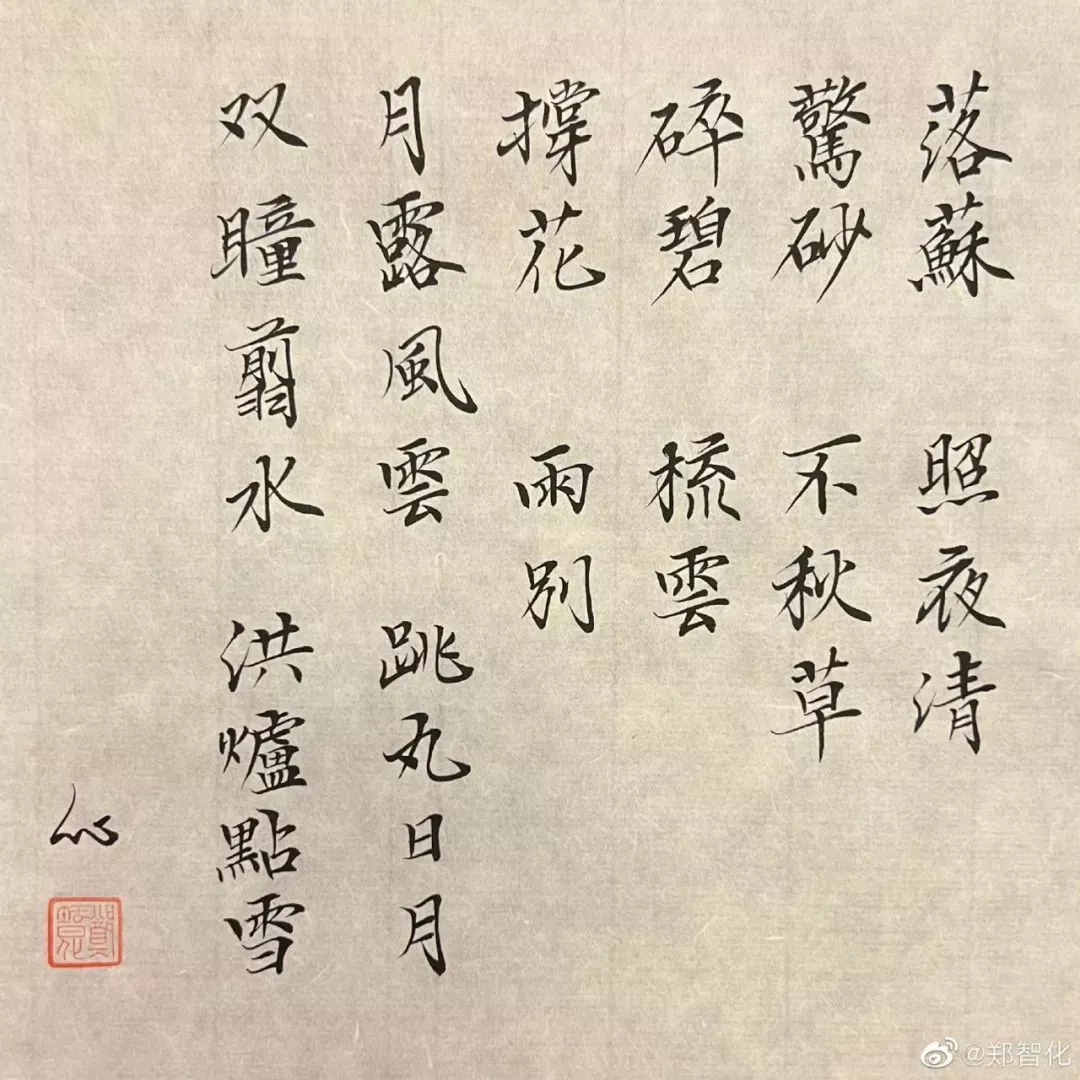 落蘇 照夜清
驚砂 不秋草
碎碧 梳雲
撑花 雨別
月露風雲 跳丸日月
双瞳翦水 洪爐點雪
@郑智化